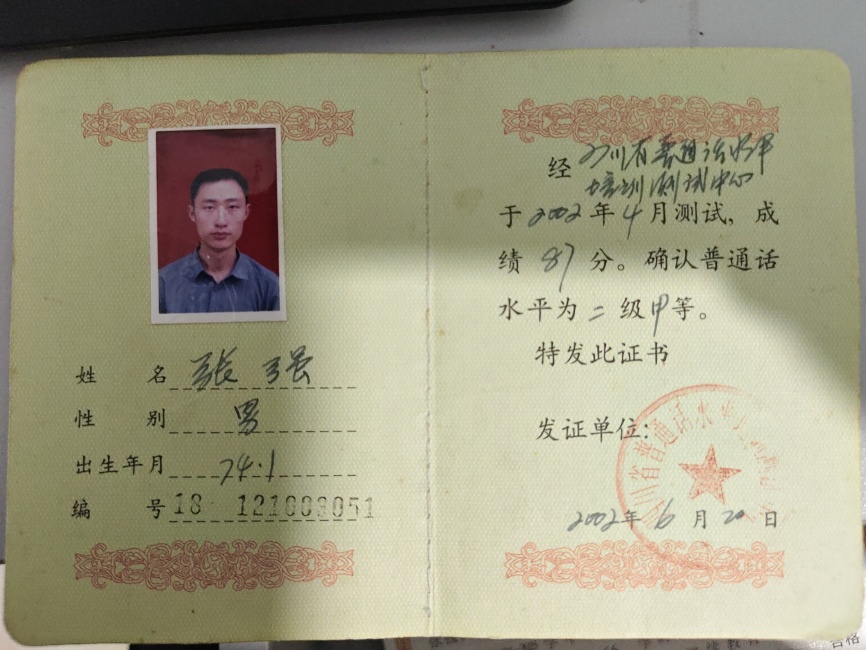 姓 名 张强
性 别 男
出生年月 74.1
编 号 18 121003051
经 四川省普通话水平
培训测试中心
于2002年4月测试，成
绩 87 分。确认普通话
水平为二级甲等。
特发此证书
发证单位：
川省普通话水平
2002年6月20日
合格